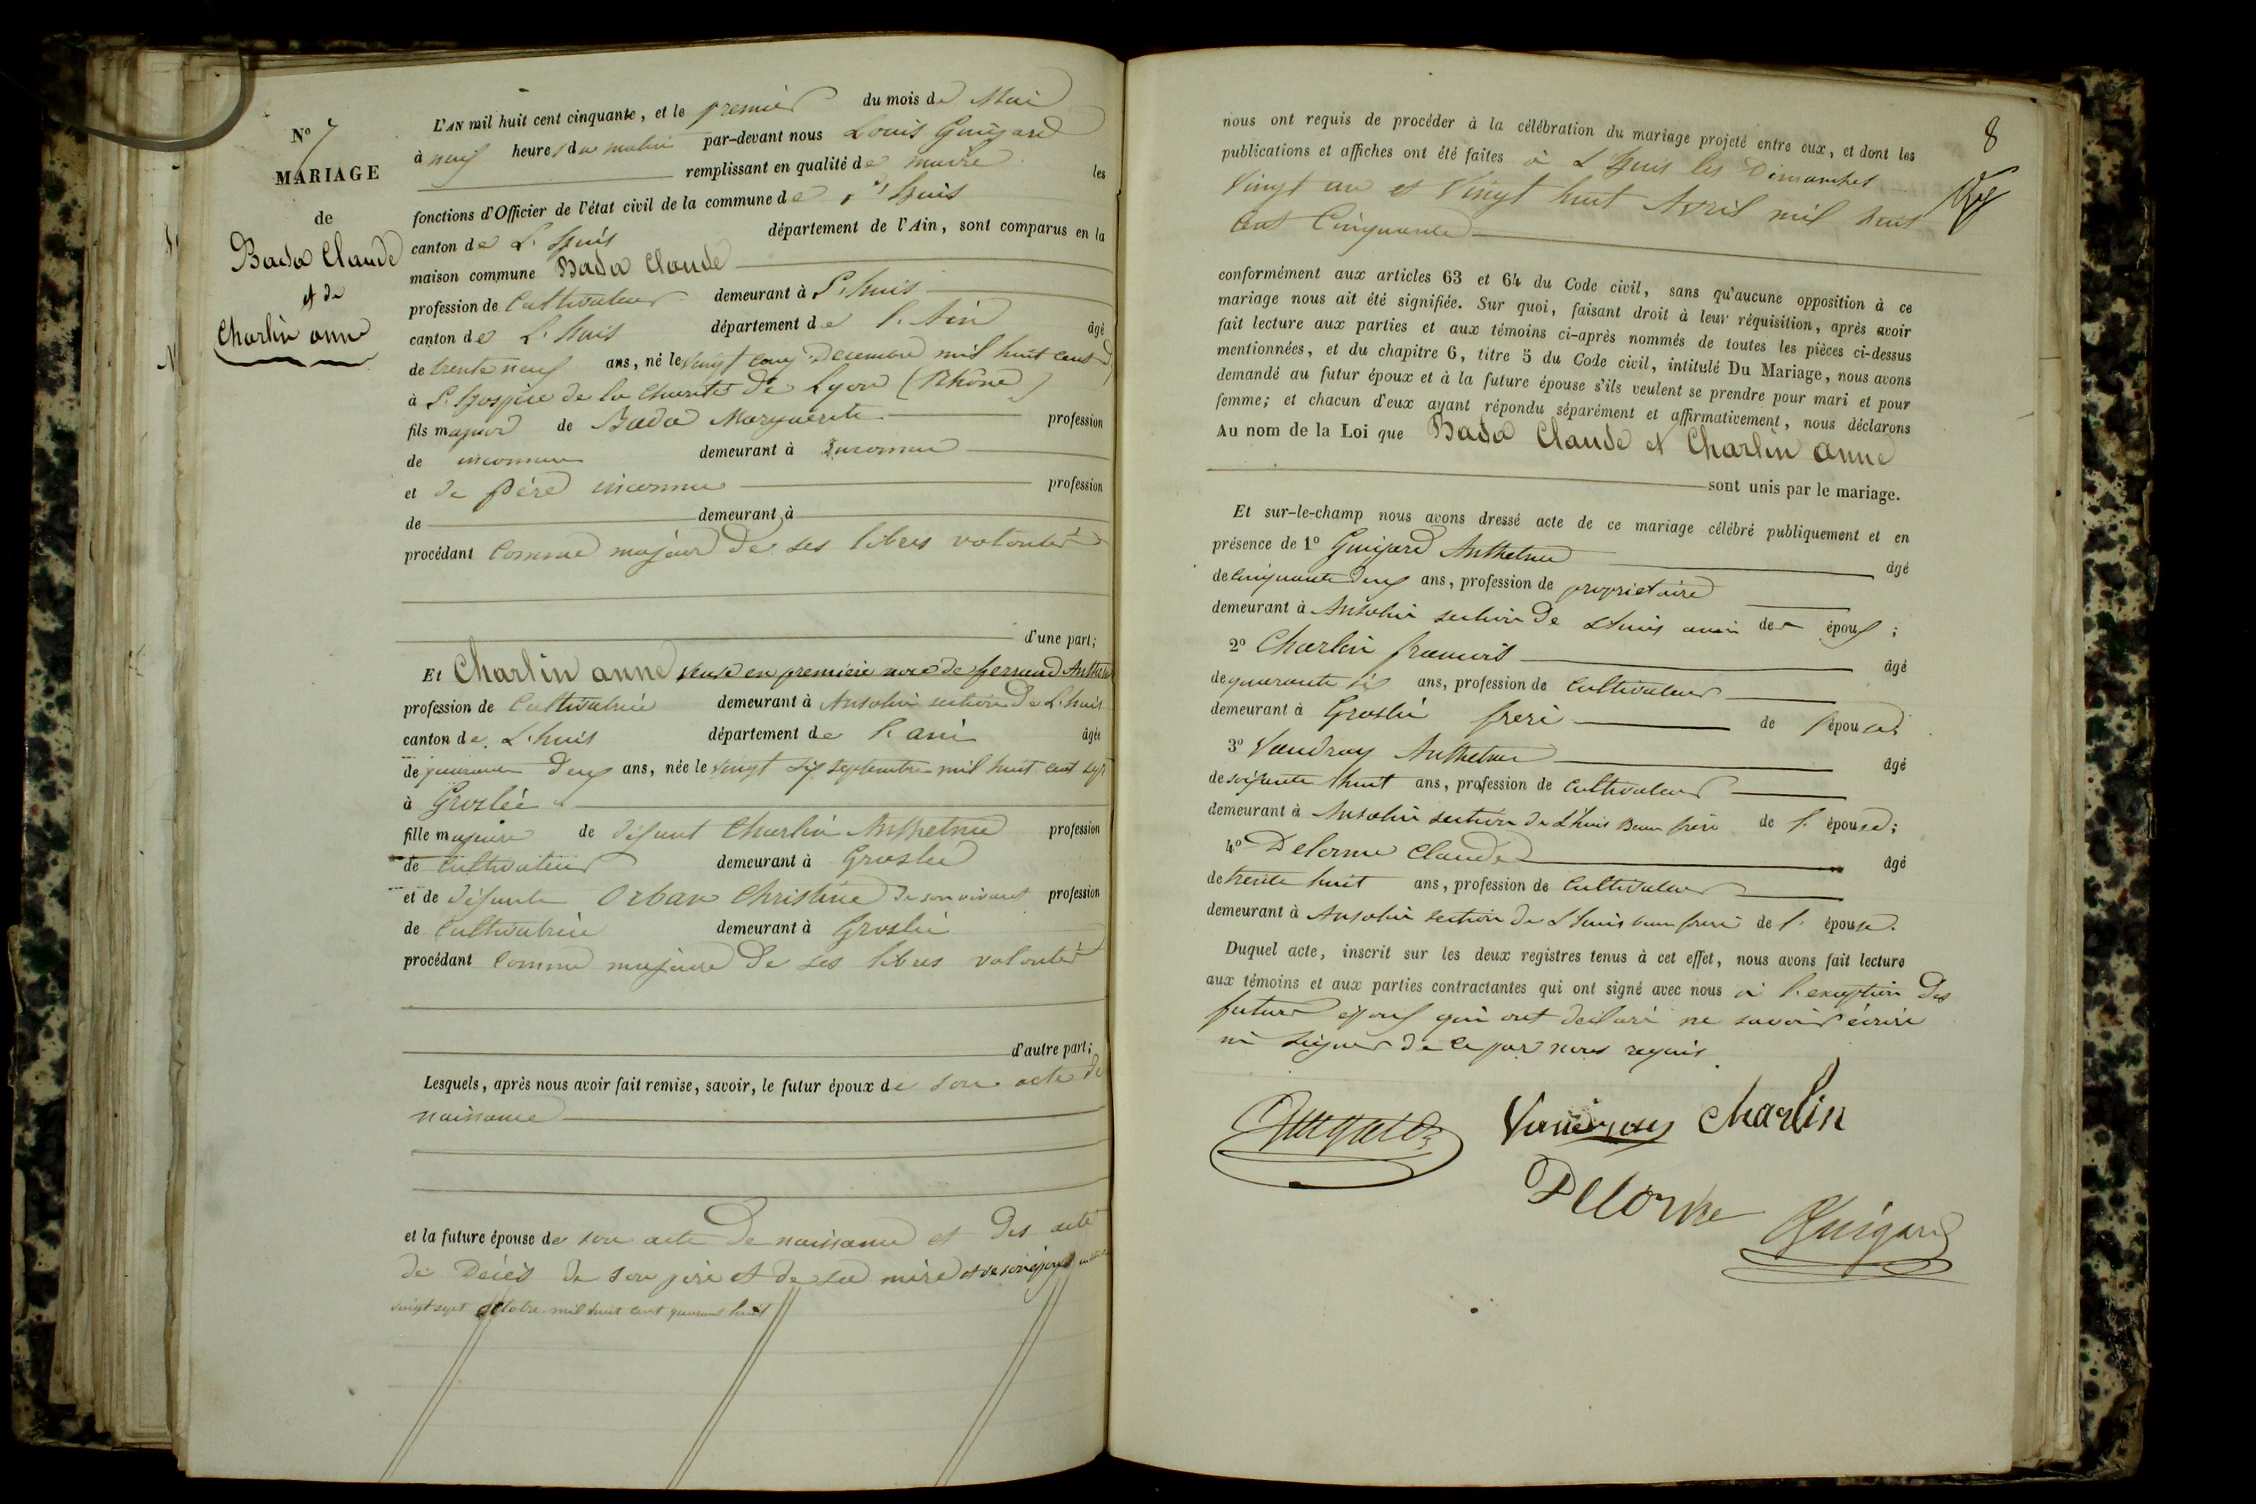 N° 7
MARIAGE
de
Bada Claude
et de
Charlin anne
L'AN mil huit cent cinquante, et le premier du mois de Mai
à neuf heures du matin par-devant nous Louis Guigard
remplissant en qualité de maire les
fonctions d'Officier de l'état civil de la commune de L'huis
canton de L'huis département de l'Ain, sont comparus en la
maison commune Bada Claude
profession de Cultivateur demeurant à L'huis
canton de L'huis département de l'Ain âgé
de trente neuf ans, né le vingt cinq Décembre mil huit cent
à L'hospice de la Charité de Lyon (Rhône)
fils majeur de Bada Marguerite profession
de inconnue demeurant à Inconnu
et de père inconnu profession
de demeurant à
procédant Comme majeur de ses libres volontés
d'une part;
Et Charlin anne veuve en première noce de
profession de Cultivatrice demeurant à Ansolin section de L'huis
canton de L'huis département de l'ain âgée
de quarante deux ans, née le vingt six septembre mil huit cent sept
à Groslée
fille majeure de défunt Charlin Anthelme profession
de Cultivateur demeurant à Groslée
et de défunte Orban Christine de son vivant profession
de Cultivatrice demeurant à Groslée
procédant Comme majeure de ses libres volontés
d'autre part;
Lesquels, après nous avoir fait remise, savoir, le futur époux de son acte de
naissance
et la future épouse de son acte de naissance et des acte
de Décès de son père et de sa mère et de son époux
vingt sept octobre mil huit cent quarante huit
8
nous ont requis de procéder à la célébration du mariage projeté entre eux, et dont les
publications et affiches ont été faites à L'huis les Dimanches
Vingt un et Vingt huit Avril mil huit
cent Cinquante
conformément aux articles 63 et 64 du Code civil, sans qu'aucune opposition à ce
mariage nous ait été signifiée. Sur quoi, faisant droit à leur réquisition, après avoir
fait lecture aux parties et aux témoins ci-après nommés de toutes les pièces ci-dessus
mentionnées, et du chapitre 6, titre 5 du Code civil, intitulé Du Mariage, nous avons
demandé au futur époux et à la future épouse s'ils veulent se prendre pour mari et pour
femme; et chacun d'eux ayant répondu séparément et affirmativement, nous déclarons
Au nom de la Loi que Bada Claude et Charlin anne
sont unis par le mariage.
Et sur-le-champ nous avons dressé acte de ce mariage célébré publiquement et en
présence de 1° Guigard Anthelme âgé
de Cinquante deux ans, profession de propriétaire
demeurant à Ansolin section de L'huis ami des époux;
2° Charlin francois âgé
de quarante six ans, profession de Cultivateur
demeurant à Groslée frère de l'épouse
3° Vaudray Anthelme âgé
de soixante huit ans, profession de Cultivateur
demeurant à Ansolin section de L'huis Beau frère de l'épouse;
4° Delorme Claude âgé
de trente huit ans, profession de Cultivateur
demeurant à Ansolin section de L'huis beau frère de l'épouse.
Duquel acte, inscrit sur les deux registres tenus à cet effet, nous avons fait lecture
aux témoins et aux parties contractantes qui ont signé avec nous à l'exception des
futurs époux qui ont déclaré ne savoir écrire
ni signer de ce par nous requis.
Guigard Charlin
Delorme Guigard